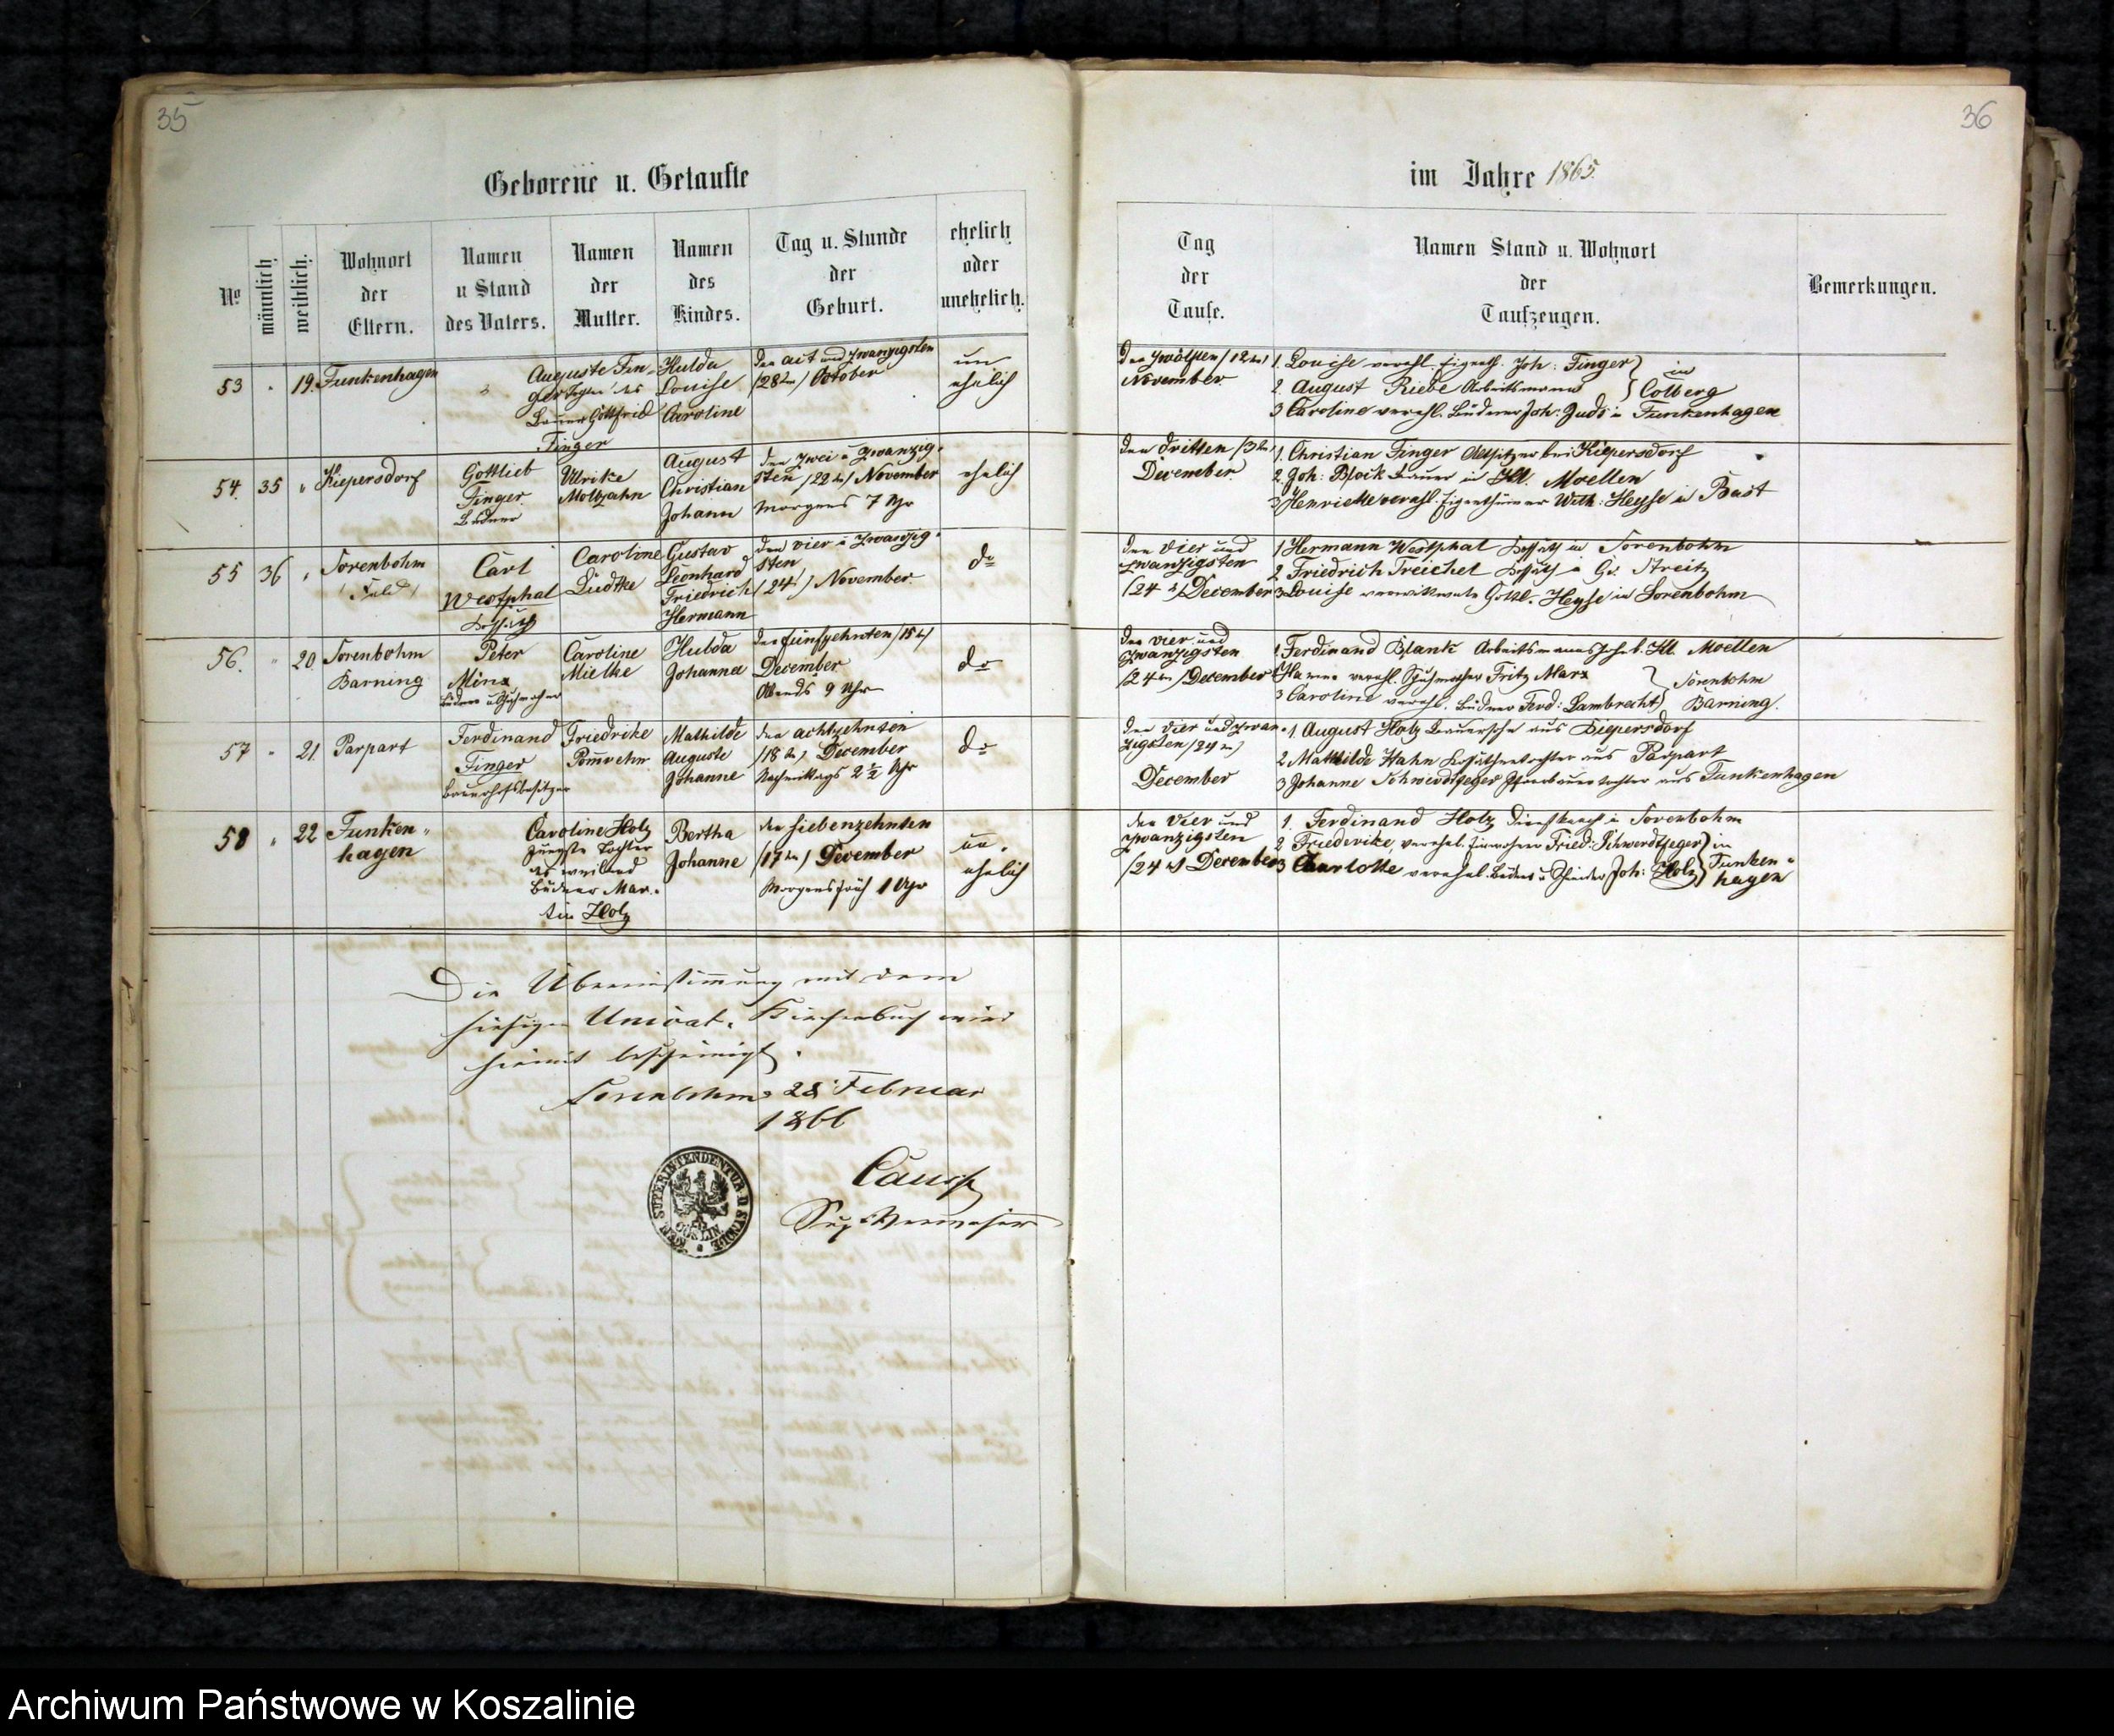 35
36
Geborene u. Getaufte
im Jahre 1865.
No
männlich
weiblich.
Wohnort
der
Eltern.
Namen
u Stand
des Vaters.
Namen
der
Mutter.
Namen
des
Kindes.
Tag u. Stunde
der
Geburt.
ehelich
oder
unehelich.
Tag
der
Taufe.
Namen Stand u. Wohnort
der
Taufzeugen.
Bemerkungen.
53
19.
Funkenhagen
Auguste Fin-
ger Tochter des
Bauer Gottfried
Finger
Hulda
Louise
Caroline
den acht und zwanzigsten
(28ten) October
un
ehelich
den zwölften (12ten)
November
1. Louise verehl. Eigenth. Joh: Finger
2. August Riebe Arbeitsmann
in
Colberg
3 Caroline verehl. Büdner Joh: in Funkenhagen
54. 35
Kiepersdorf
Gottlieb
Finger
Büdner
Ulrike
Molzahn
August
Christian
Johann
den zwei u zwanzig-
sten (22ten) November
Morgens 7 Uhr
ehelich
den dritten (3ten)
December
1. Christian Finger bei Kiepersdorf
2. Joh: Block Bauer in Kl. Moellen
3 Henriette verehl. Eigenthümer Wilh: Heyse in Bast
55 36
Sorenbohm
(Feld)
Carl
Westphal
Kossäth
Caroline
Lüdtke
Gustav
Leonhard
Friedrich
Hermann
den vier u zwanzig-
sten
(24ten) November
do
den vier und
zwanzigsten
(24ten) December
1 Hermann Westphal Kossäth in Sorenbohm
2 Friedrich Treichel Kossäth in Gr. Streitz
3 Louise verwittwete Gottl. Heyse in Sorenbohm
56.
20
Sorenbohm
Barning
Peter
Minx
Büdner u Schuhmacher
Caroline
Mielke
Hulda
Johanna
den fünfzehnten (15ten)
December
Abends 9 Uhr
do
den vier und
zwanzigsten
(24ten) December
1 Ferdinand Blank Arbeitsmann Kl. Moellen
verehl. Schuhmacher Fritz Marx
3 Caroline verehl. Büdner Ferd: Lambrecht
Sorenbohm
Barning.
57
21.
Parpart
Ferdinand
Finger
Bauerhofsbesitzer
Friedrike
Pomrehn
Mathilde
Auguste
Johanne
den achtzehnten
(18ten) December
Nachmittags 2½ Uhr
do
den vier und zwan-
zigsten (24ten)
December
1 August Holz Bauersohn aus Kiepersdorf
2 Mathilde Hahn Kossäthentochter aus Parpart
3 Johanne Schwerdtfeger aus Funkenhagen
58
22
Funken-
hagen
Caroline Holz
jüngste Tochter
des weiland
Büdner Mar-
tin Holz
Bertha
Johanne
den siebenzehnten
(17ten) December
Morgens früh 1 Uhr
un-
ehelich
den vier und
zwanzigsten
(24ten) December
1. Ferdinand Holz Dienstknecht in Sorenbohm
2 Friederike, verehel. Einwohner Fried: Schwerdtfeger
3 Charlotte verehel. Büdner u Schneider Joh: Holz
in
Funken-
hagen
Die Übereinstimmung mit dem
hiesigen Unicat-Kirchenbuch wird
hiermit bescheinigt.
Sorenbohm 28 Februar
1866
Sup. Verweser
KGL. SUPERINTENDENTUR D. SYNODE
CÖSLIN
Archiwum Państwowe w Koszalinie